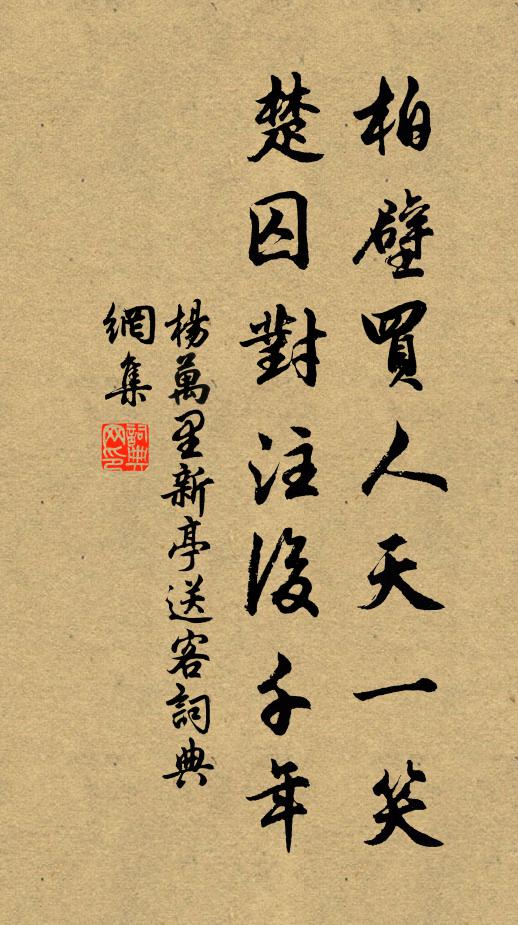 柏壁買人天一笑
楚囚對注後千年
楊萬里新亭送客詞典
網集
詞典
網印